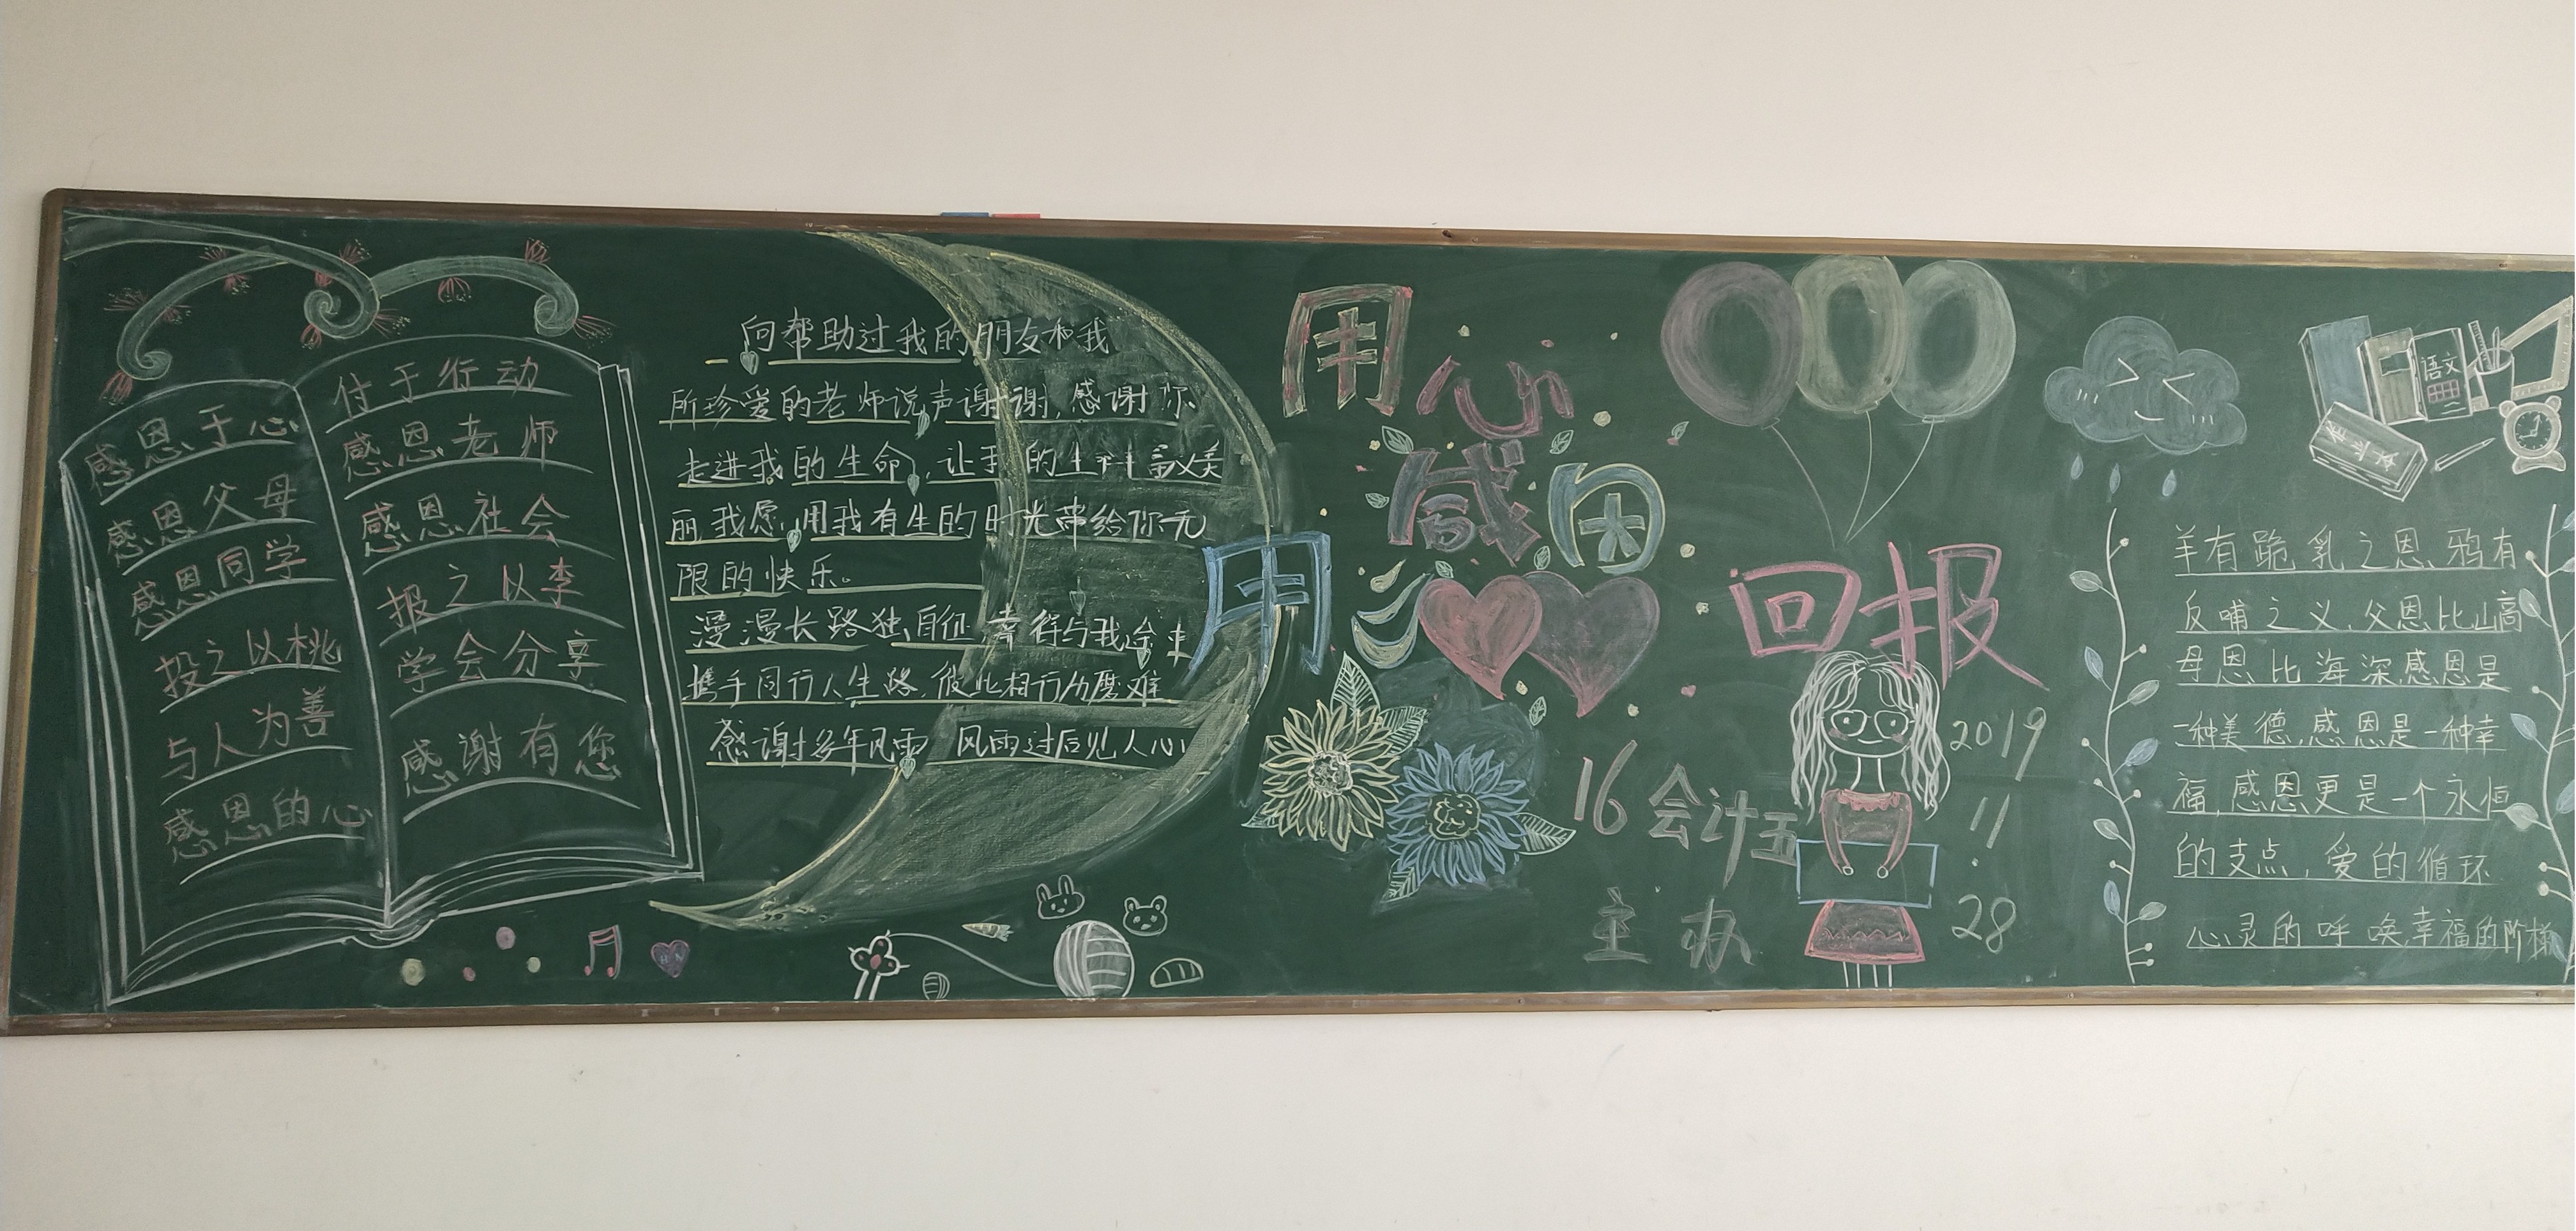 感恩于心
感恩父母
感恩同学
投之以桃
与人为善
感恩的心
付于行动
感恩老师
感恩社会
报之以李
学会分享
感谢有您
向帮助过我的朋友和我
所珍爱的老师说声谢谢,感谢你
走进我的生命,让我的生命
丽,我愿,用我有生的时光带给你无
限的快乐。
漫漫长路独自 幸得与我
携手同行人生路,彼此相行历磨难
感谢多年风雨 风雨过后见人心
用心
感恩
用心
回报
16会计五
主办
2019
11
28
语文
羊有跪乳之恩,鸦有
反哺之义,父恩比山高
母恩比海深,感恩是
一种美德,感恩是一种幸
福,感恩更是一个永恒
的支点,爱的循环
心灵的呼唤,幸福的阶梯